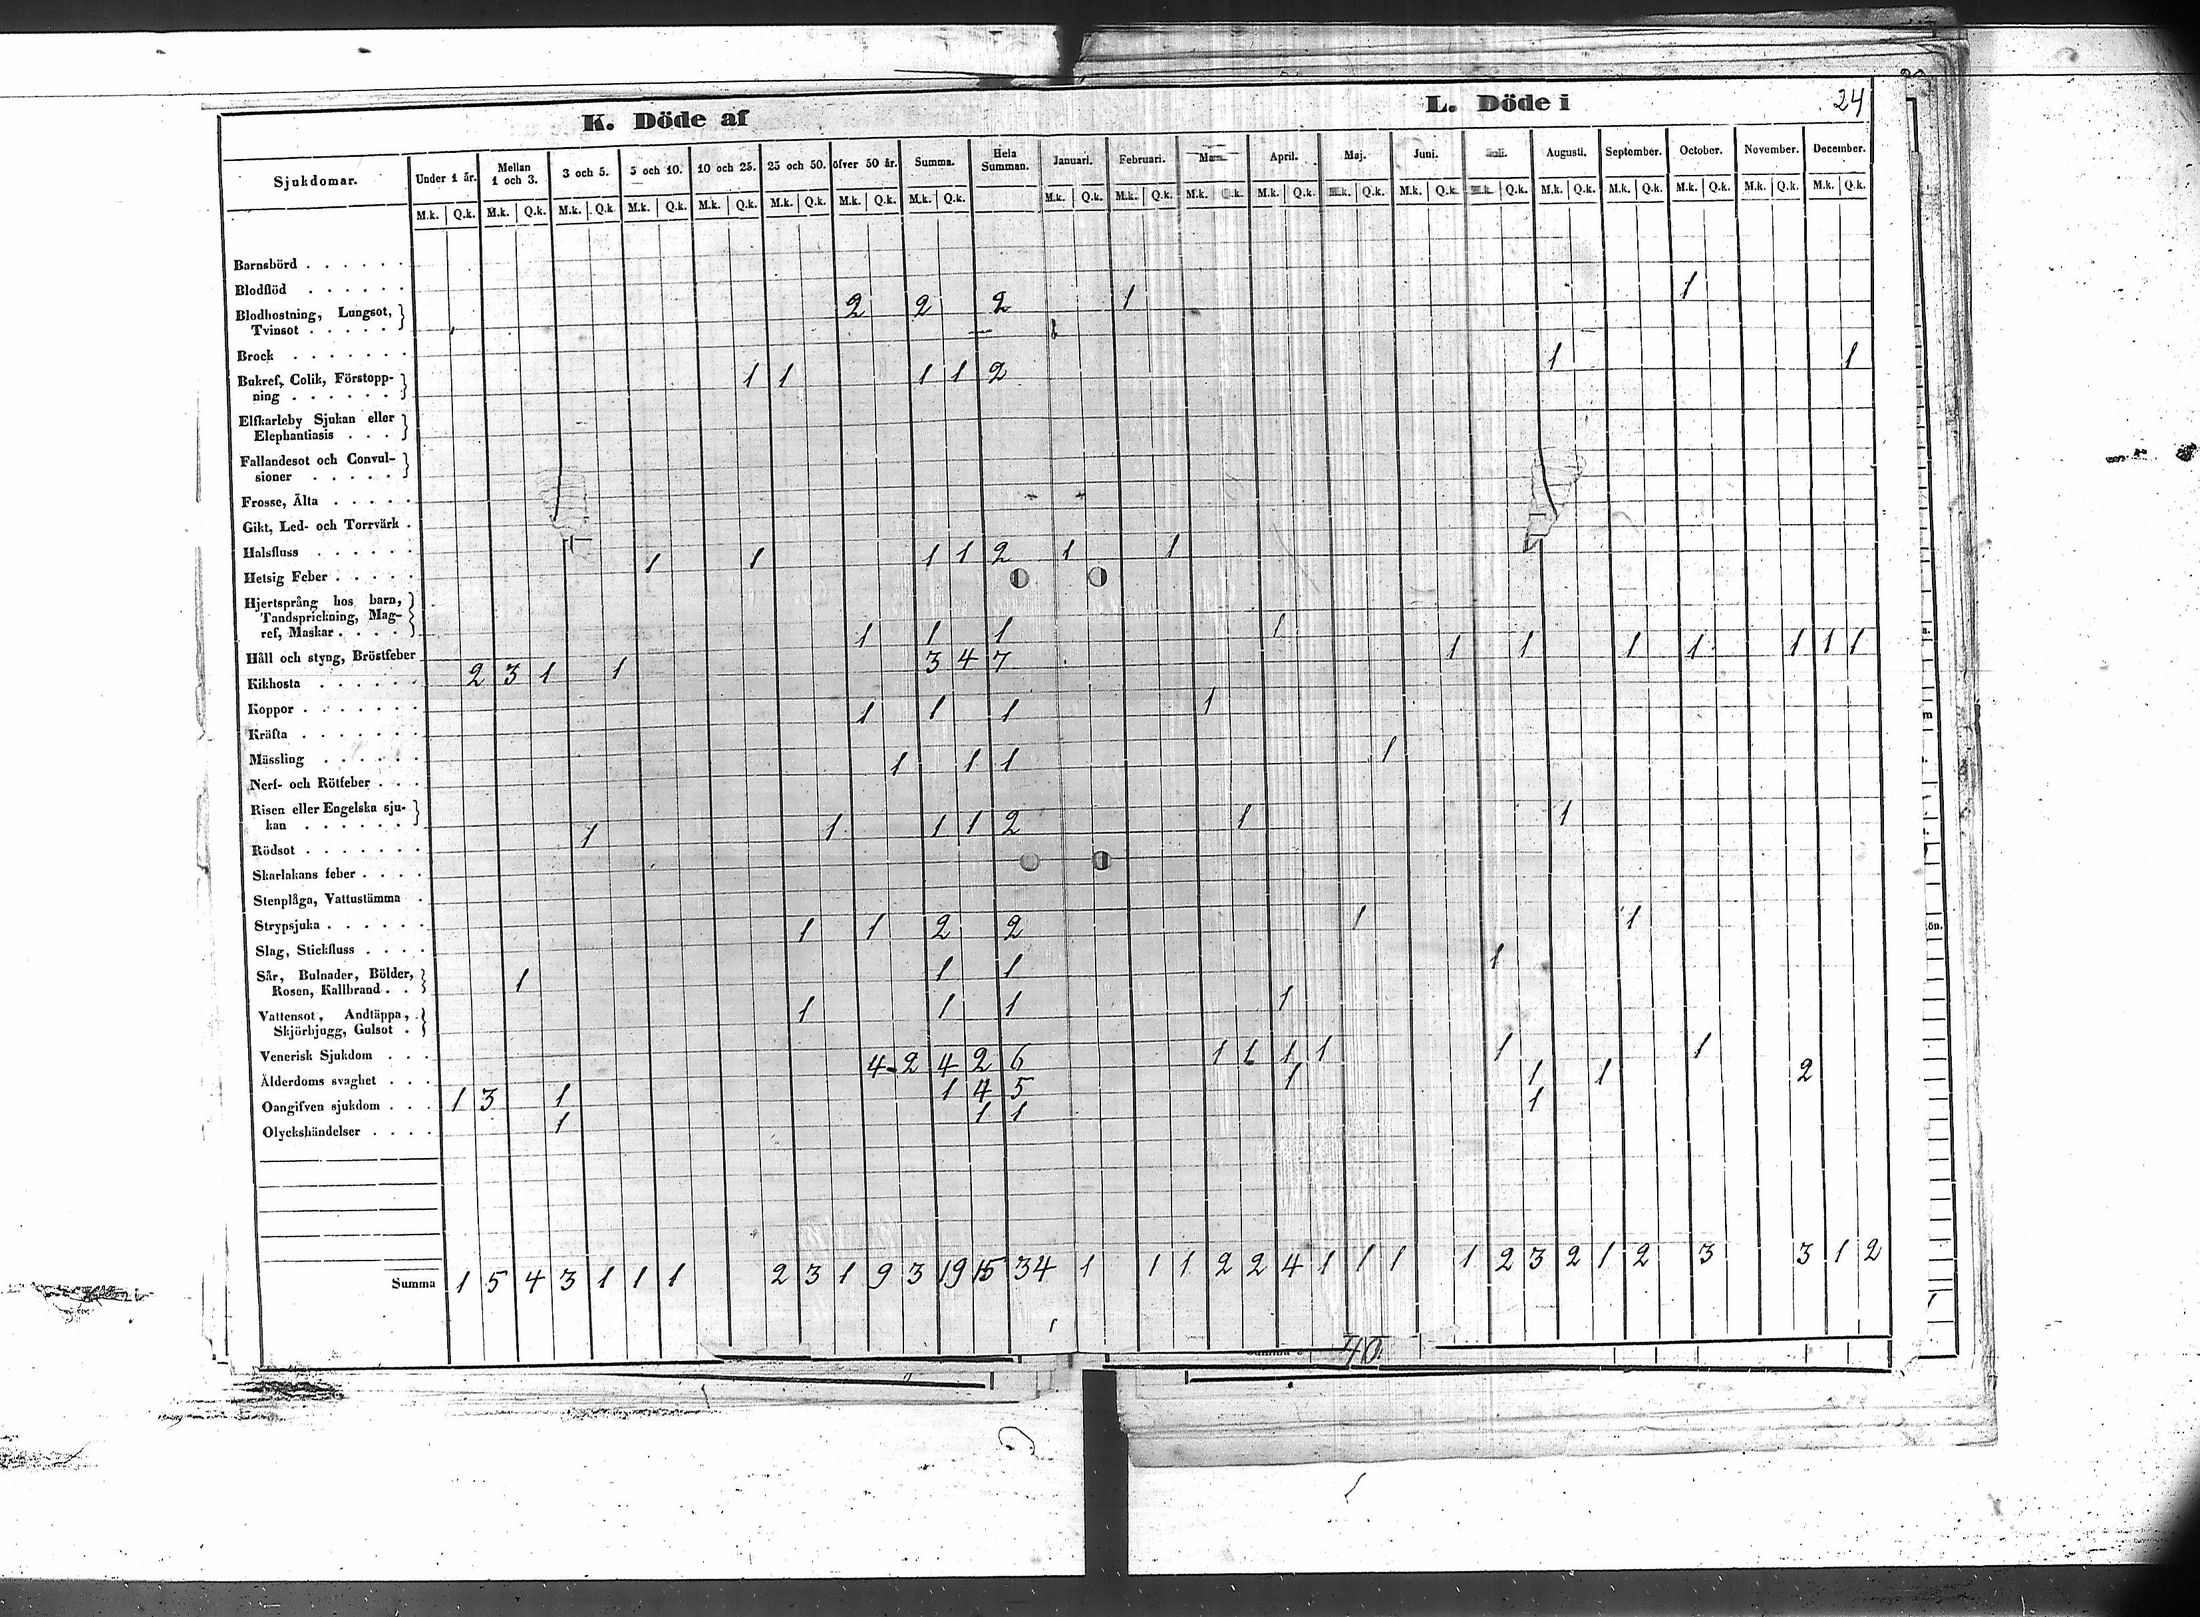 K. Döde af
L. Döde i 24
Sjukdomar. Under 1 år. Mellan 1 och 3. 3 och 5. 5 och 10. 10 och 25. 25 och 50. öfver 50 år. Summa. Hela Summan. Januari. Februari. Mars. April. Maj. Juni. Juli. Augusti. September. October. November. December.
M.k. Q.k. M.k. Q.k. M.k. Q.k. M.k. Q.k. M.k. Q.k. M.k. Q.k. M.k. Q.k. M.k. Q.k. M.k. Q.k. M.k. Q.k. M.k. Q.k. M.k. Q.k. M.k. Q.k. M.k. Q.k. M.k. Q.k. M.k. Q.k. M.k. Q.k. M.k. Q.k. M.k. Q.k. M.k. Q.k.
Barnsbörd . . . . . .
Blodflöd . . . . . .
Blodhostning, Lungsot, 2 2 2 1 1
Tvinsot . . . . .
Brock . . . . . . .
Bukref, Colik, Förstopp- 1 1 1 1 2 1 1
ning . . . . . .
Elfkarleby Sjukan eller
Elephantiasis . . .
Fallandesot och Convul-
sioner . . . . .
Frosse, Älta . . . . .
Gikt, Led- och Torrvärk .
Halsfluss . . . . . . 1 1 1 1 2 1 1
Hetsig Feber . . . . .
Hjertsprång hos barn,
Tandsprickning, Mag-
ref, Maskar . . . .
Håll och styng, Bröstfeber 1 1 1 1
Kikhosta . . . . . . 2 3 1 1 3 4 7 1 1 1 1 1 1 1
Koppor . . . . . . .
Kräfta . . . . . . . 1 1 1 1
Mässling . . . . . .
Nerf- och Rötfeber . . . 1 1 1 1
Risen eller Engelska sju-
kan . . . . . . 1 1 1 1 2 1 1
Rödsot . . . . . . .
Skarlakans feber . . . .
Stenplåga, Vattustämma .
Strypsjuka . . . . . .
Slag, Stickfluss . . . . 1 1 2 2 1 1
Sår, Bulnader, Bölder, 1 1 1 1
Rosen, Kallbrand . .
Vattensot, Andtäppa, 1 1 1 1
Skjörbjugg, Gulsot .
Venerisk Sjukdom . . .
Ålderdoms svaghet . . . 4 2 4 2 6 1 1 1 1 1 1
Oangifven sjukdom . . . 1 3 1 1 4 5 1 1 1 2
Olyckshändelser . . . . 1 1 1 1
Summa 1 5 4 3 1 1 1 2 3 1 9 3 19 15 34 1 1 1 2 2 4 1 1 1 1 2 3 2 1 2 3 3 1 2
40